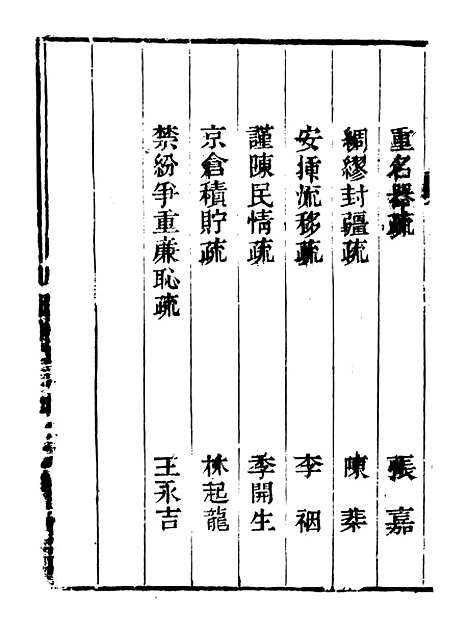 重名器疏 張嘉
綢繆封疆疏 陳棐
安插流移疏 李裀
謹陳民情疏 季開生
京倉積貯疏 林起龍
禁紛爭重廉恥疏 王永吉